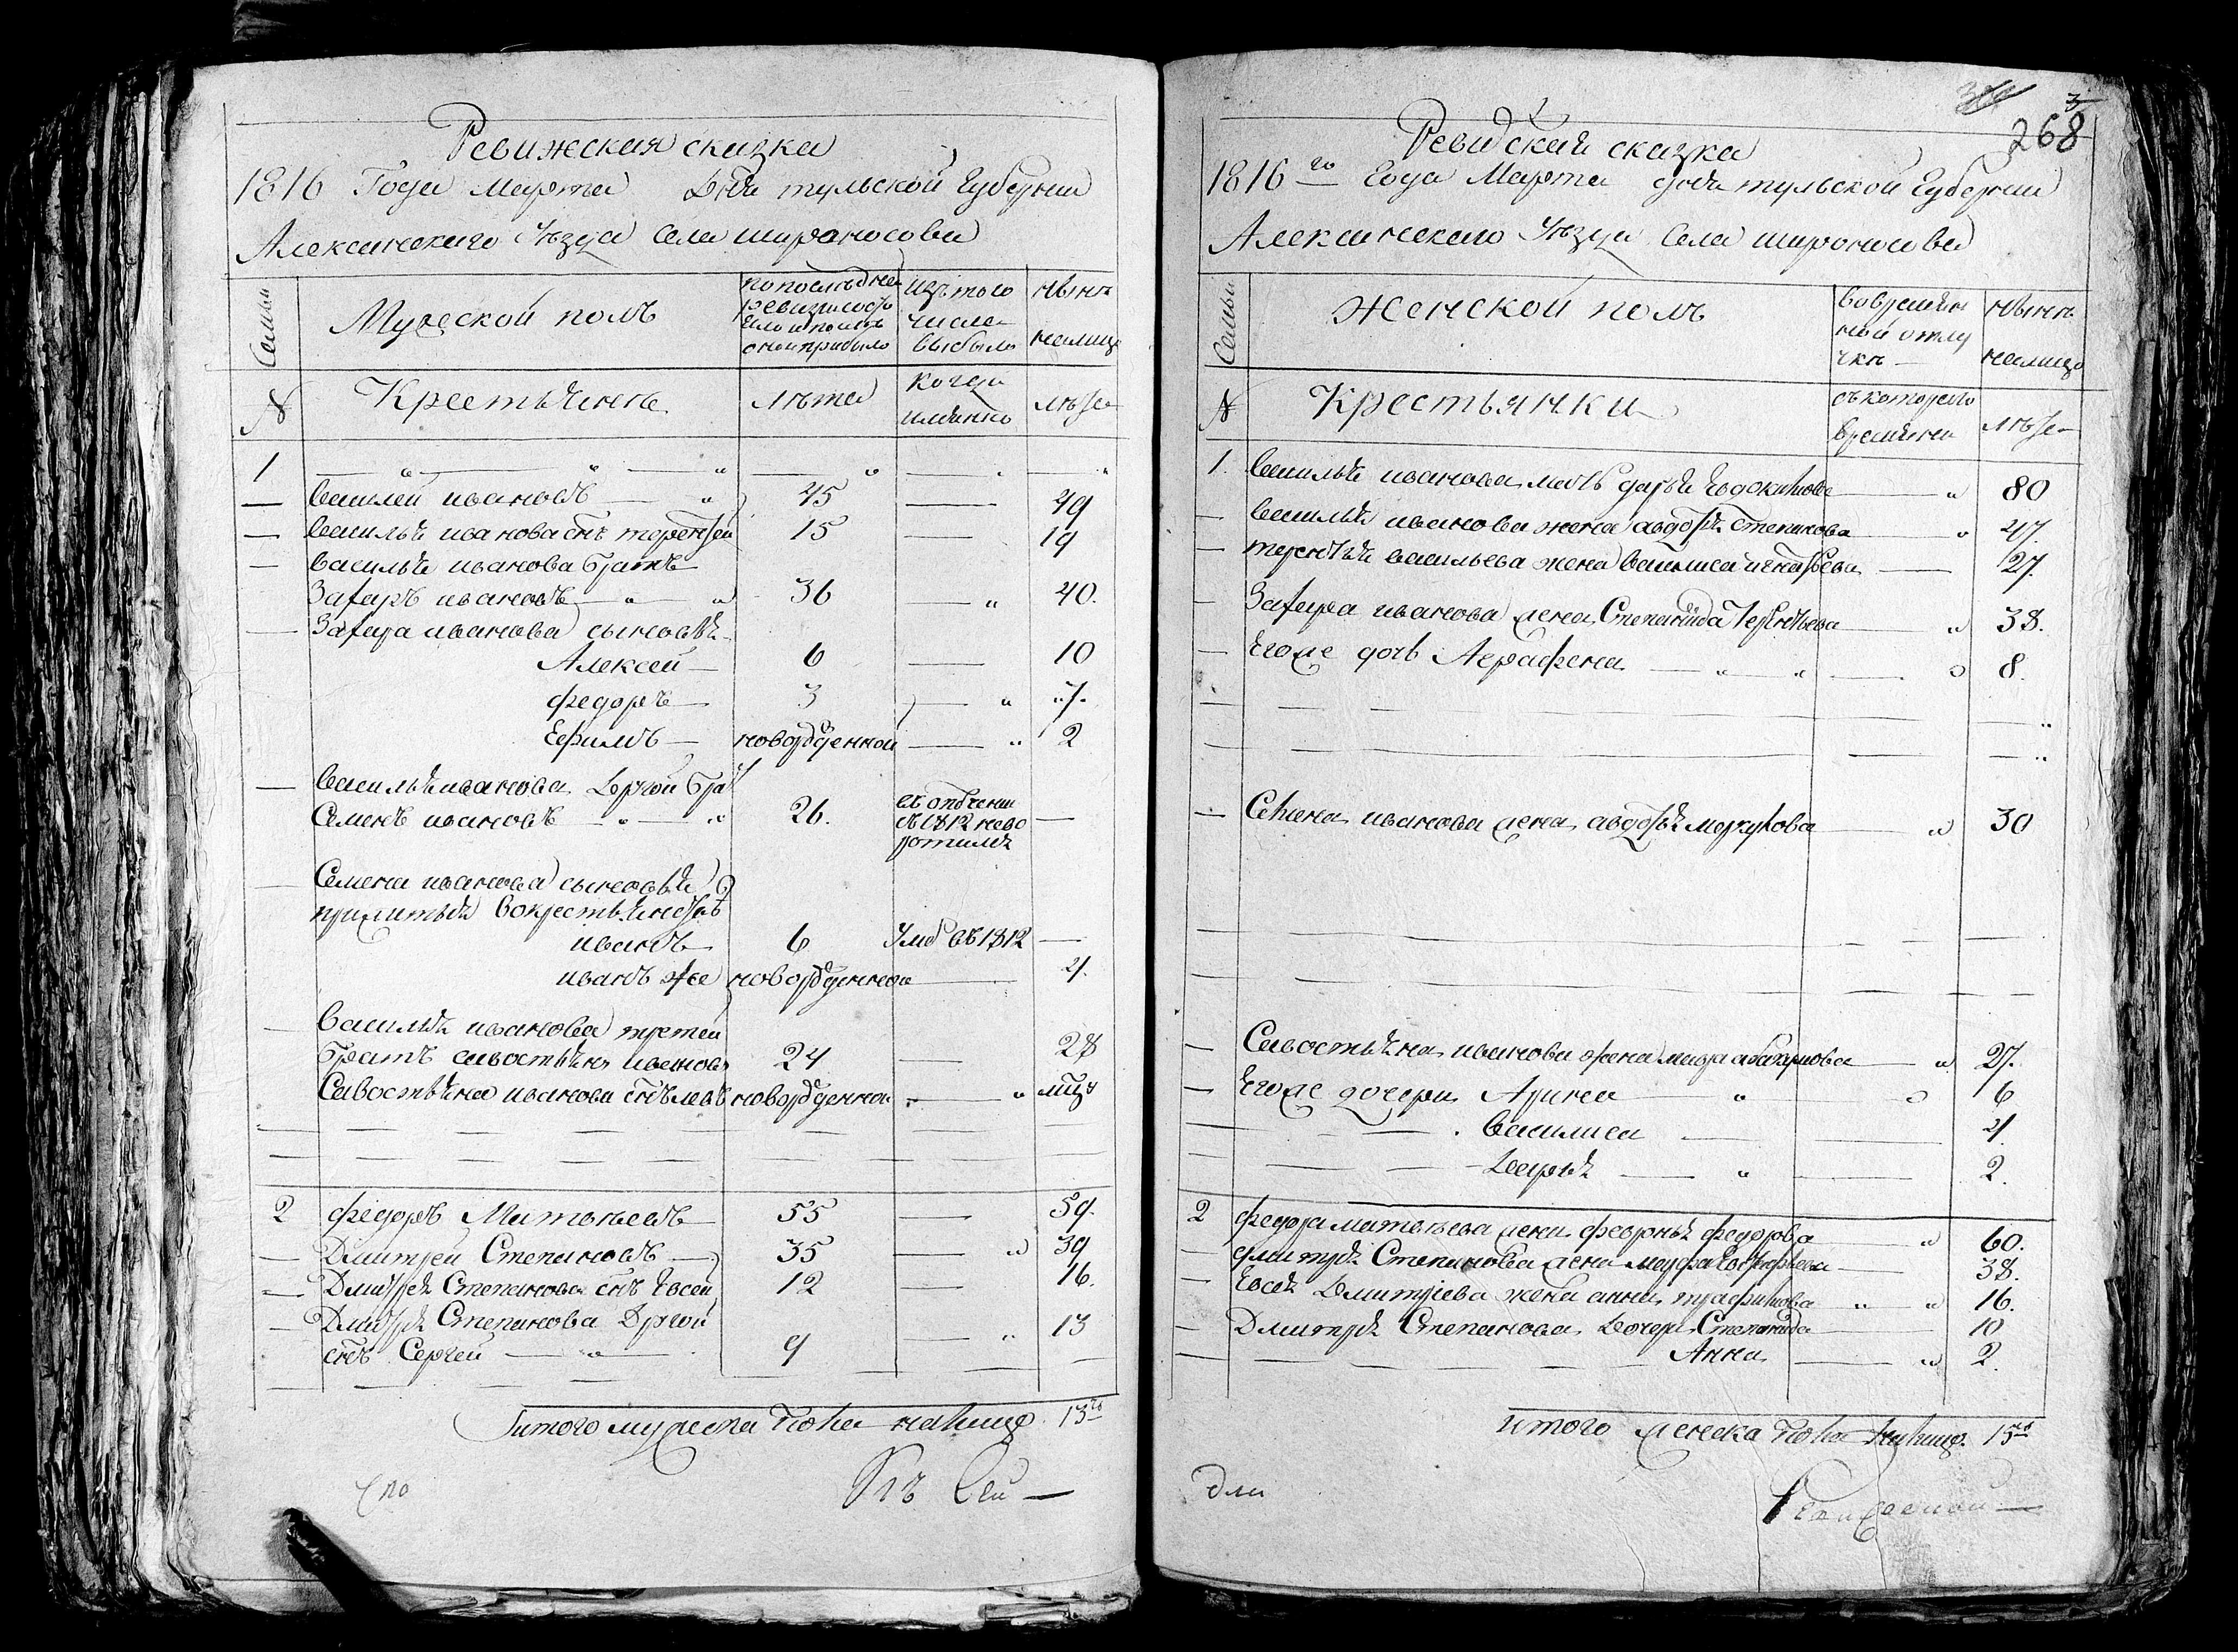 Ревижская сказка
1816 Года Марта Дня тульской Губернии
Алексинскаго Уѣзда Села широносова
Семьи
Мужеской полъ
по последней
ревизии состо
яло и послѣ
оной прибыло
изътого
числа
выбыло
нынѣ
налицо
№
Крестьянѣ
лѣта
когда
имянно
лѣта
1
василей ивановъ 45 49
василья иванова снъ терентей 15 19
василья иванова братъ
Захаръ ивановъ 36 40.
Захара иванова сыновья
Алексей 6 10
федоръ 3 7.
Ефимъ новорожденной 2
василья иванова Другой бра
Семенъ ивановъ 26.
въ ополчении
въ 1812 нево
ротился
Семена иванова сыновья
прижитыя вокрестьянствѣ
иванъ 6 Умр въ 1812
иванъ же новорожденной 4.
василья иванова третей
братъ савостьянъ иванов 24 28
Савостьяна иванова снъ левъ новорожденной
2 федоръ Матвѣевъ 55 59.
Дмитрей Степановъ 35 39
Дмитрея Степанова снъ Евсей 12 16.
Дмитрея Степанова Другой 13
снъ Сергей 9
итого мужеска пола налицо 13
по
Къ сей
3
268
Ревидская сказка
1816го Года Марта дня тульской Губернии
Алексинскаго Уѣзда Села широносова
Семьи
Женской полъ
вовремян
ной отлу
чкѣ
нынѣ
налицо
№
Крестьянки
съкотораго
времяни
лѣта
1. василья иванова мать дарья Евдокимова 80
василья иванова жена авдотья Степанова 47.
терентья васильева жена василиса игнатьева 27.
Захара иванова жена Степанида Терентьева 38.
Егоже дочь Аграфена 8.
Семена иванова жена авдотья меркулова 30
Савостьяна иванова жена мавра абакумова 27.
Егоже дочери Арина 6
василиса 4
Дарья 2.
2 федора матвѣева жена феврнья федорова 60.
дмитрея Степанова жена мавра Евстафьева 38.
Евсея Дмитриева жена анна трафимова 16.
Дмитрея Степанова Дочери Степанида 10
Анна 2.
итого женска пола налицо. 15
для